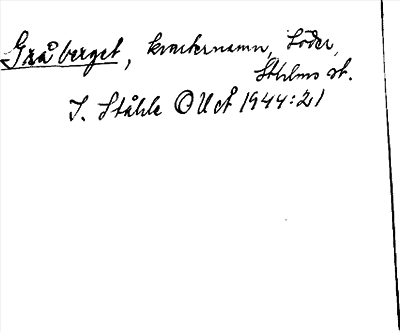 Gråberget, kvartersnamn, Söder,
Sthlms st.
I. Ståhle OUÅ 1944:21